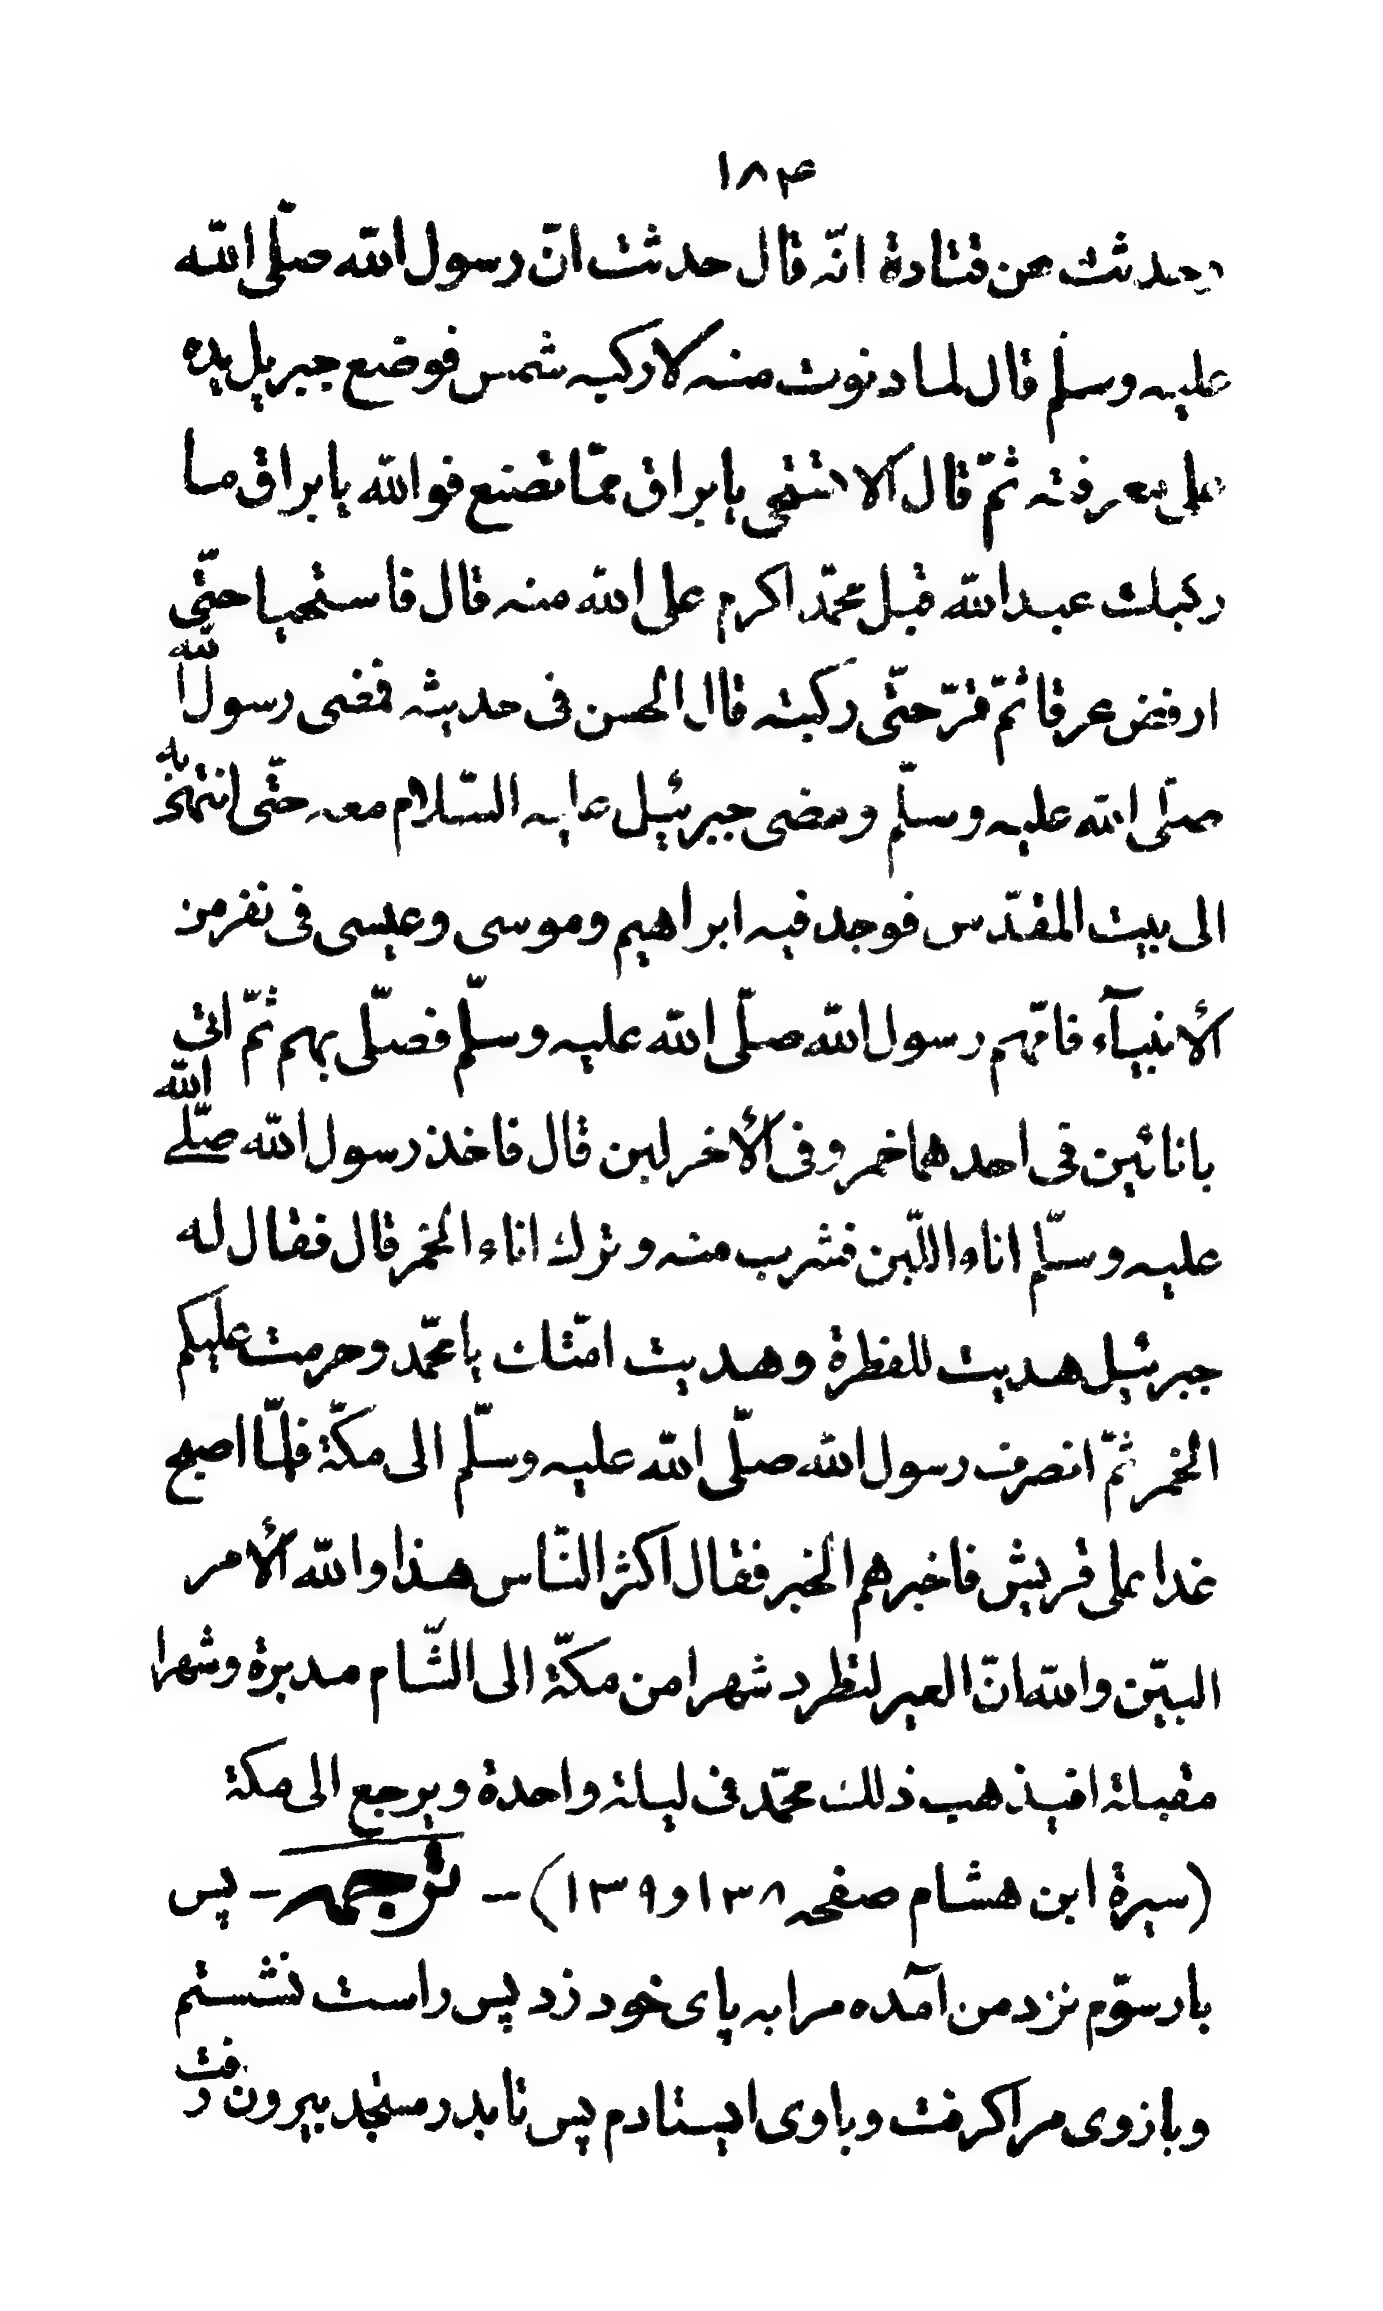 ۱۸۴
وحدثت عن قتادة انّه قال حدثت انّ رسول الله صلّى الله
عليه وسلّم قال لما دنوت منه لاركبه شمس فوضع جبريل يده
على معرفته ثمّ قال الا تستحى يا براق ممّا تصنع فوالله يا براق ما
ركبك عبد الله قبل محمّد اكرم على الله منه قال فاستحيا حتّى
ارفض عرقا ثمّ قرّ حتّى ركبته قال الحسن فى حديثه فمضى رسول الله
صلّى الله عليه وسلّم ومضى جبرئيل عليه السّلام معه حتّى انتهى به
الى بيت المقدّس فوجد فيه ابراهيم وموسى وعيسى فى نفر من
الأنبيآء فامّهم رسول الله صلّى الله عليه وسلّم فصلّى بهم ثمّ اتى
بانائين فى احدهما خمر وفى الأخر لبن قال فاخذ رسول الله صلّى الله
عليه وسلّم اناء اللّبن فشرب منه وترك اناء الخمر قال فقال له
جبرئيل هديت للفطرة وهديت امّتك يا محمّد وحرمت عليكم
الخمر ثمّ انصرف رسول الله صلّى الله عليه وسلّم الى مكّة فلمّا اصبح
غدا على قريش فاخبرهم الخبر فقال اكثر النّاس هذا والله الأمر
البيّن والله انّ العير لتطرد شهرا من مكّة الى الشّام مدبرة وشهرا
مقبلة افيذهب ذلك محمّد فى ليلة واحدة ويرجع الى مكة
(سيرة ابن هشام صفحه ۱۳۸ و ۱۳۹) – ترجمه – پس
بار سوّم نزد من آمده مرا به پای خود زد پس راست نشستم
و بازوی مرا گرفت و با وی ایستادم پس تا بدر مسجد بیرون رفت